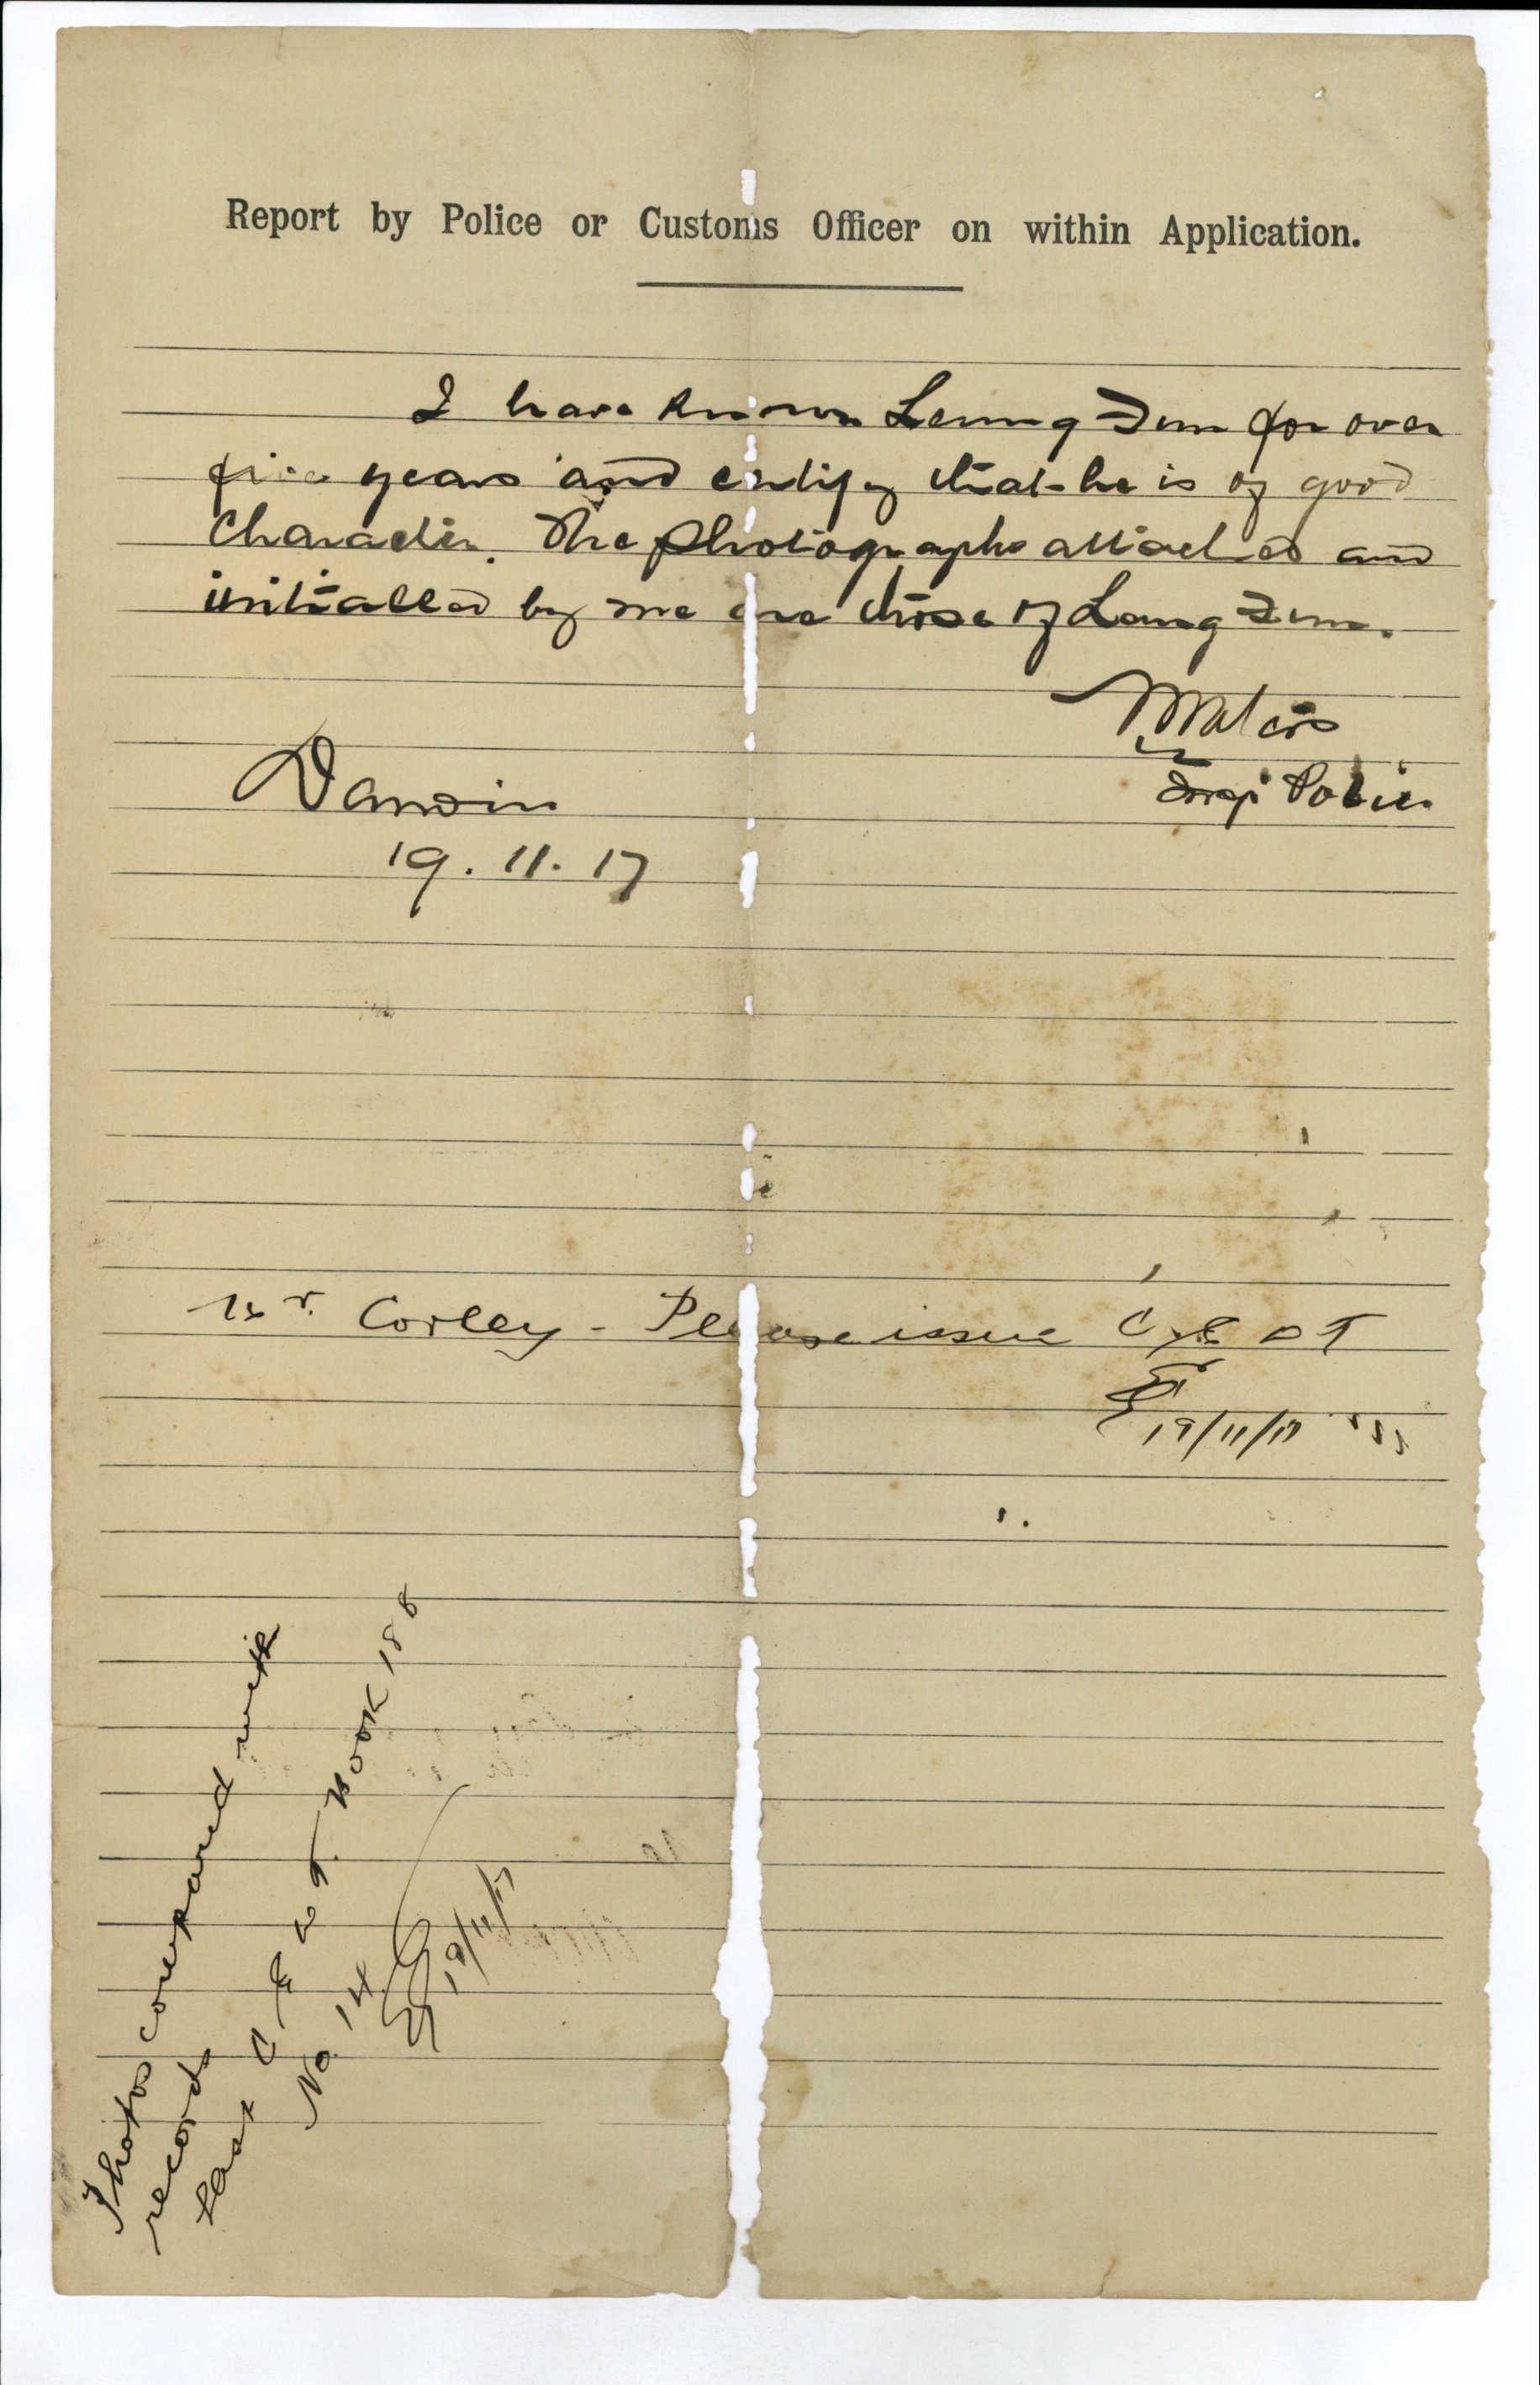 Report by Police or Customs Officer on within Application.
I have known Leung Sum for over
five years and certify that he is of good
Character. The photographs attached and
initialled by me are those of Leung Sum.
Waters
Insp Police
Darwin
19.11.17
Mr. Corley - Please issue C of E D T
19/11/17
Photos compared with
records
last C of E D T. Book 188
No 14
19/11/17